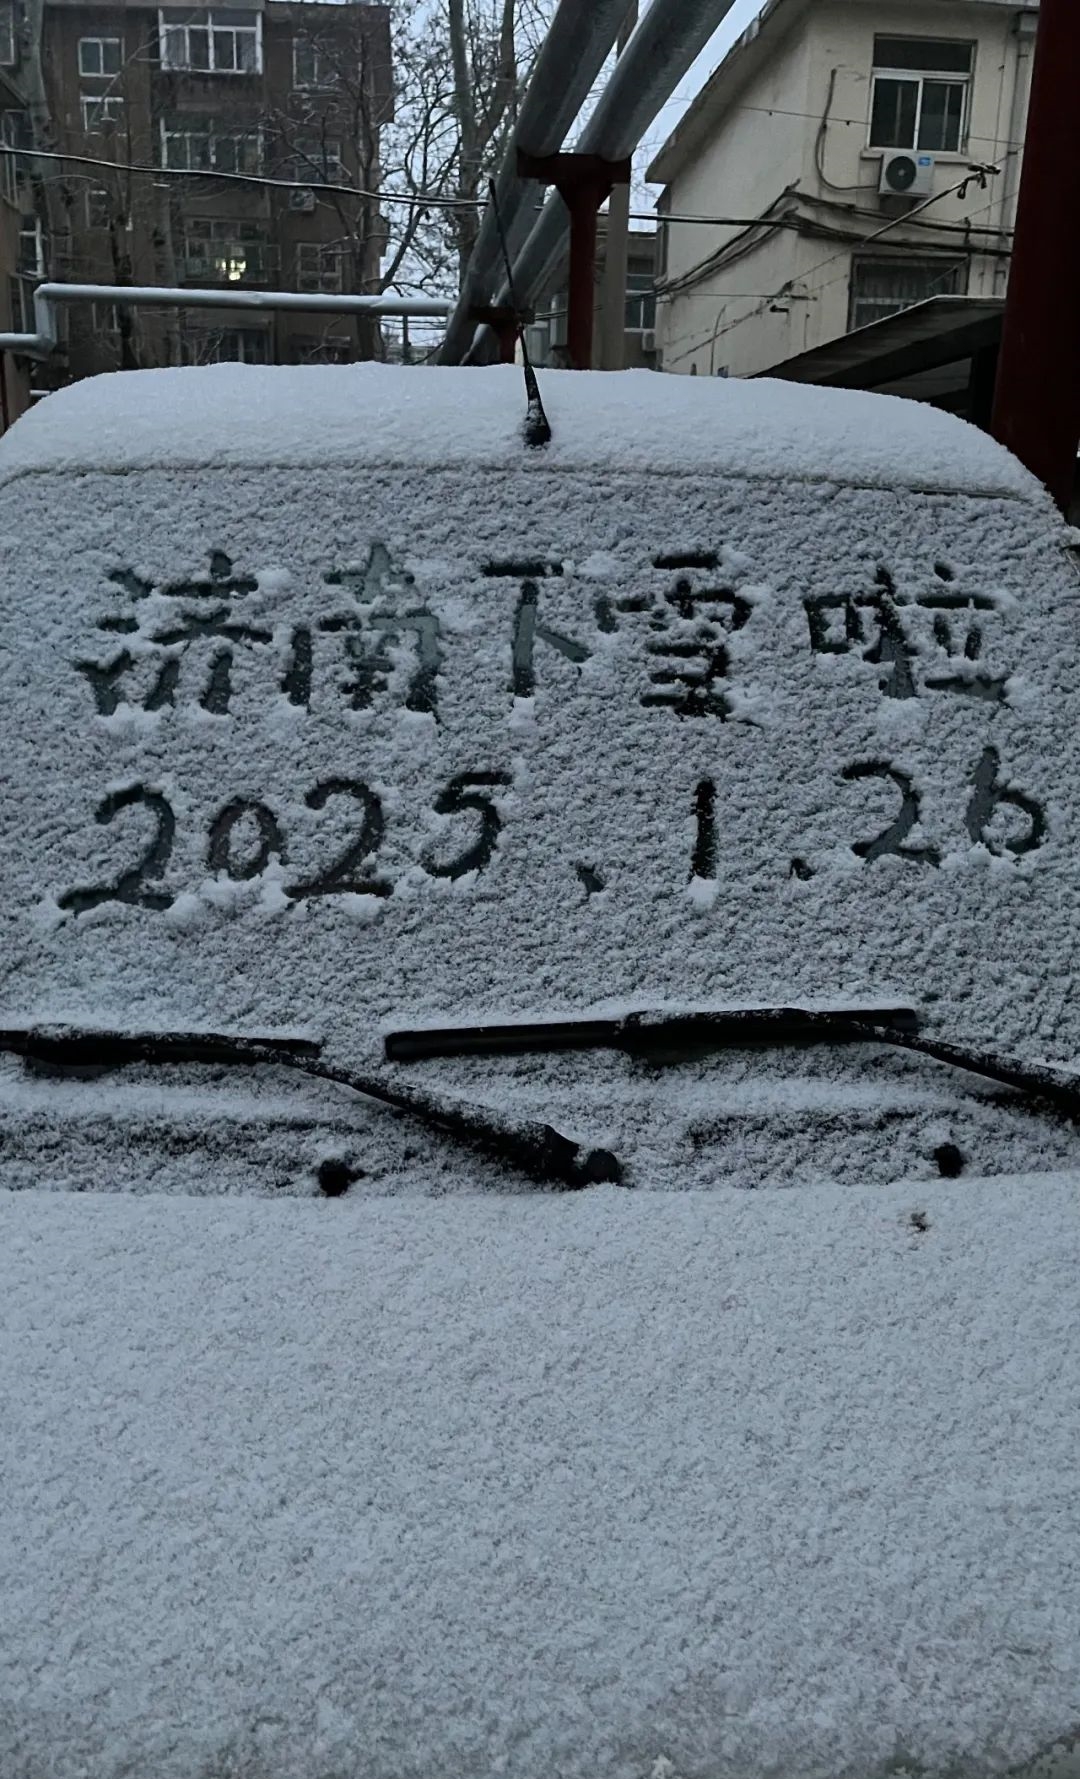 济南下雪啦
2025.1.26